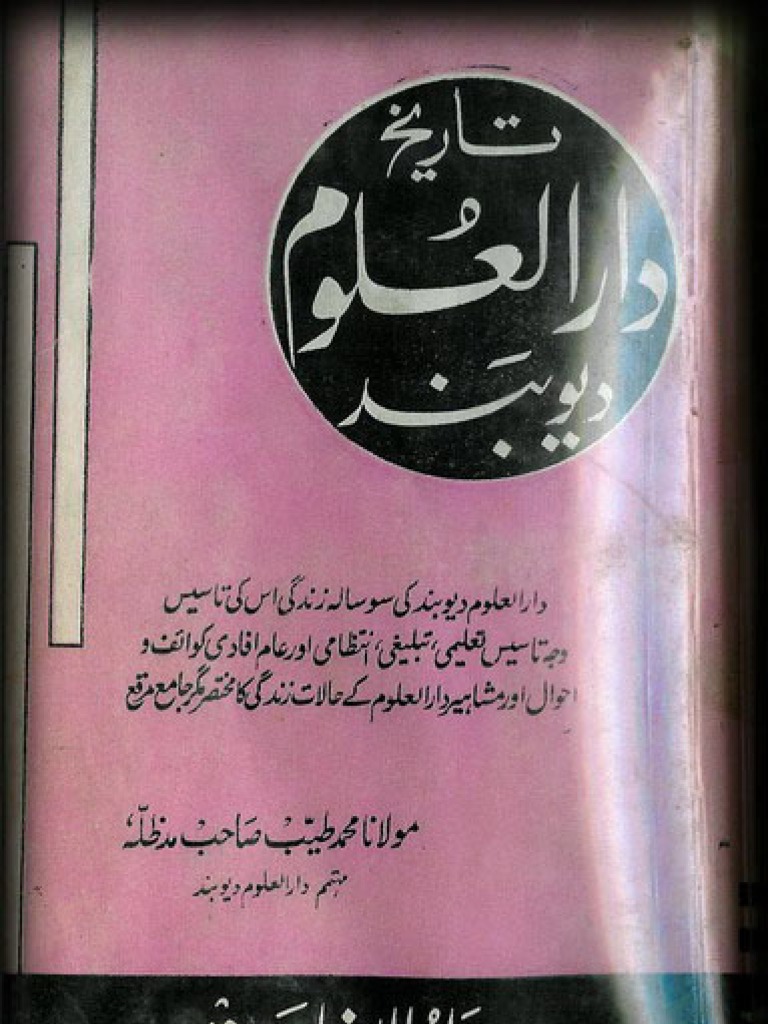 تاریخ
دارالعلوم
دیوبند
دارالعلوم دیوبند کی سو سالہ زندگی اس کی تاسیس
وجہ تاسیس تعلیمی، تبلیغی، انتظامی اور عام افادی کوائف و
احوال اور مشاہیر دارالعلوم کے حالات زندگی کا مختصر مگر جامع مرقع
مولانا محمد طیّب صاحب مدظلّہٗ
مہتمم دارالعلوم دیوبند